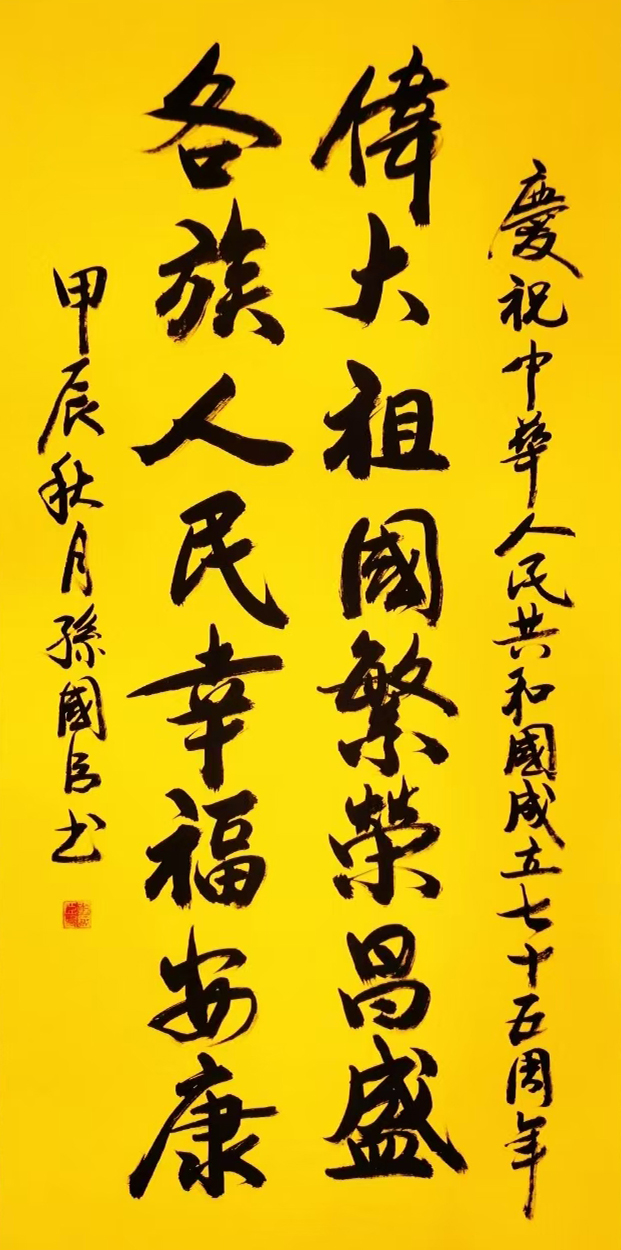 慶祝中華人民共和國成立七十五周年
偉大祖國繁榮昌盛
各族人民幸福安康
甲辰秋月孫國书